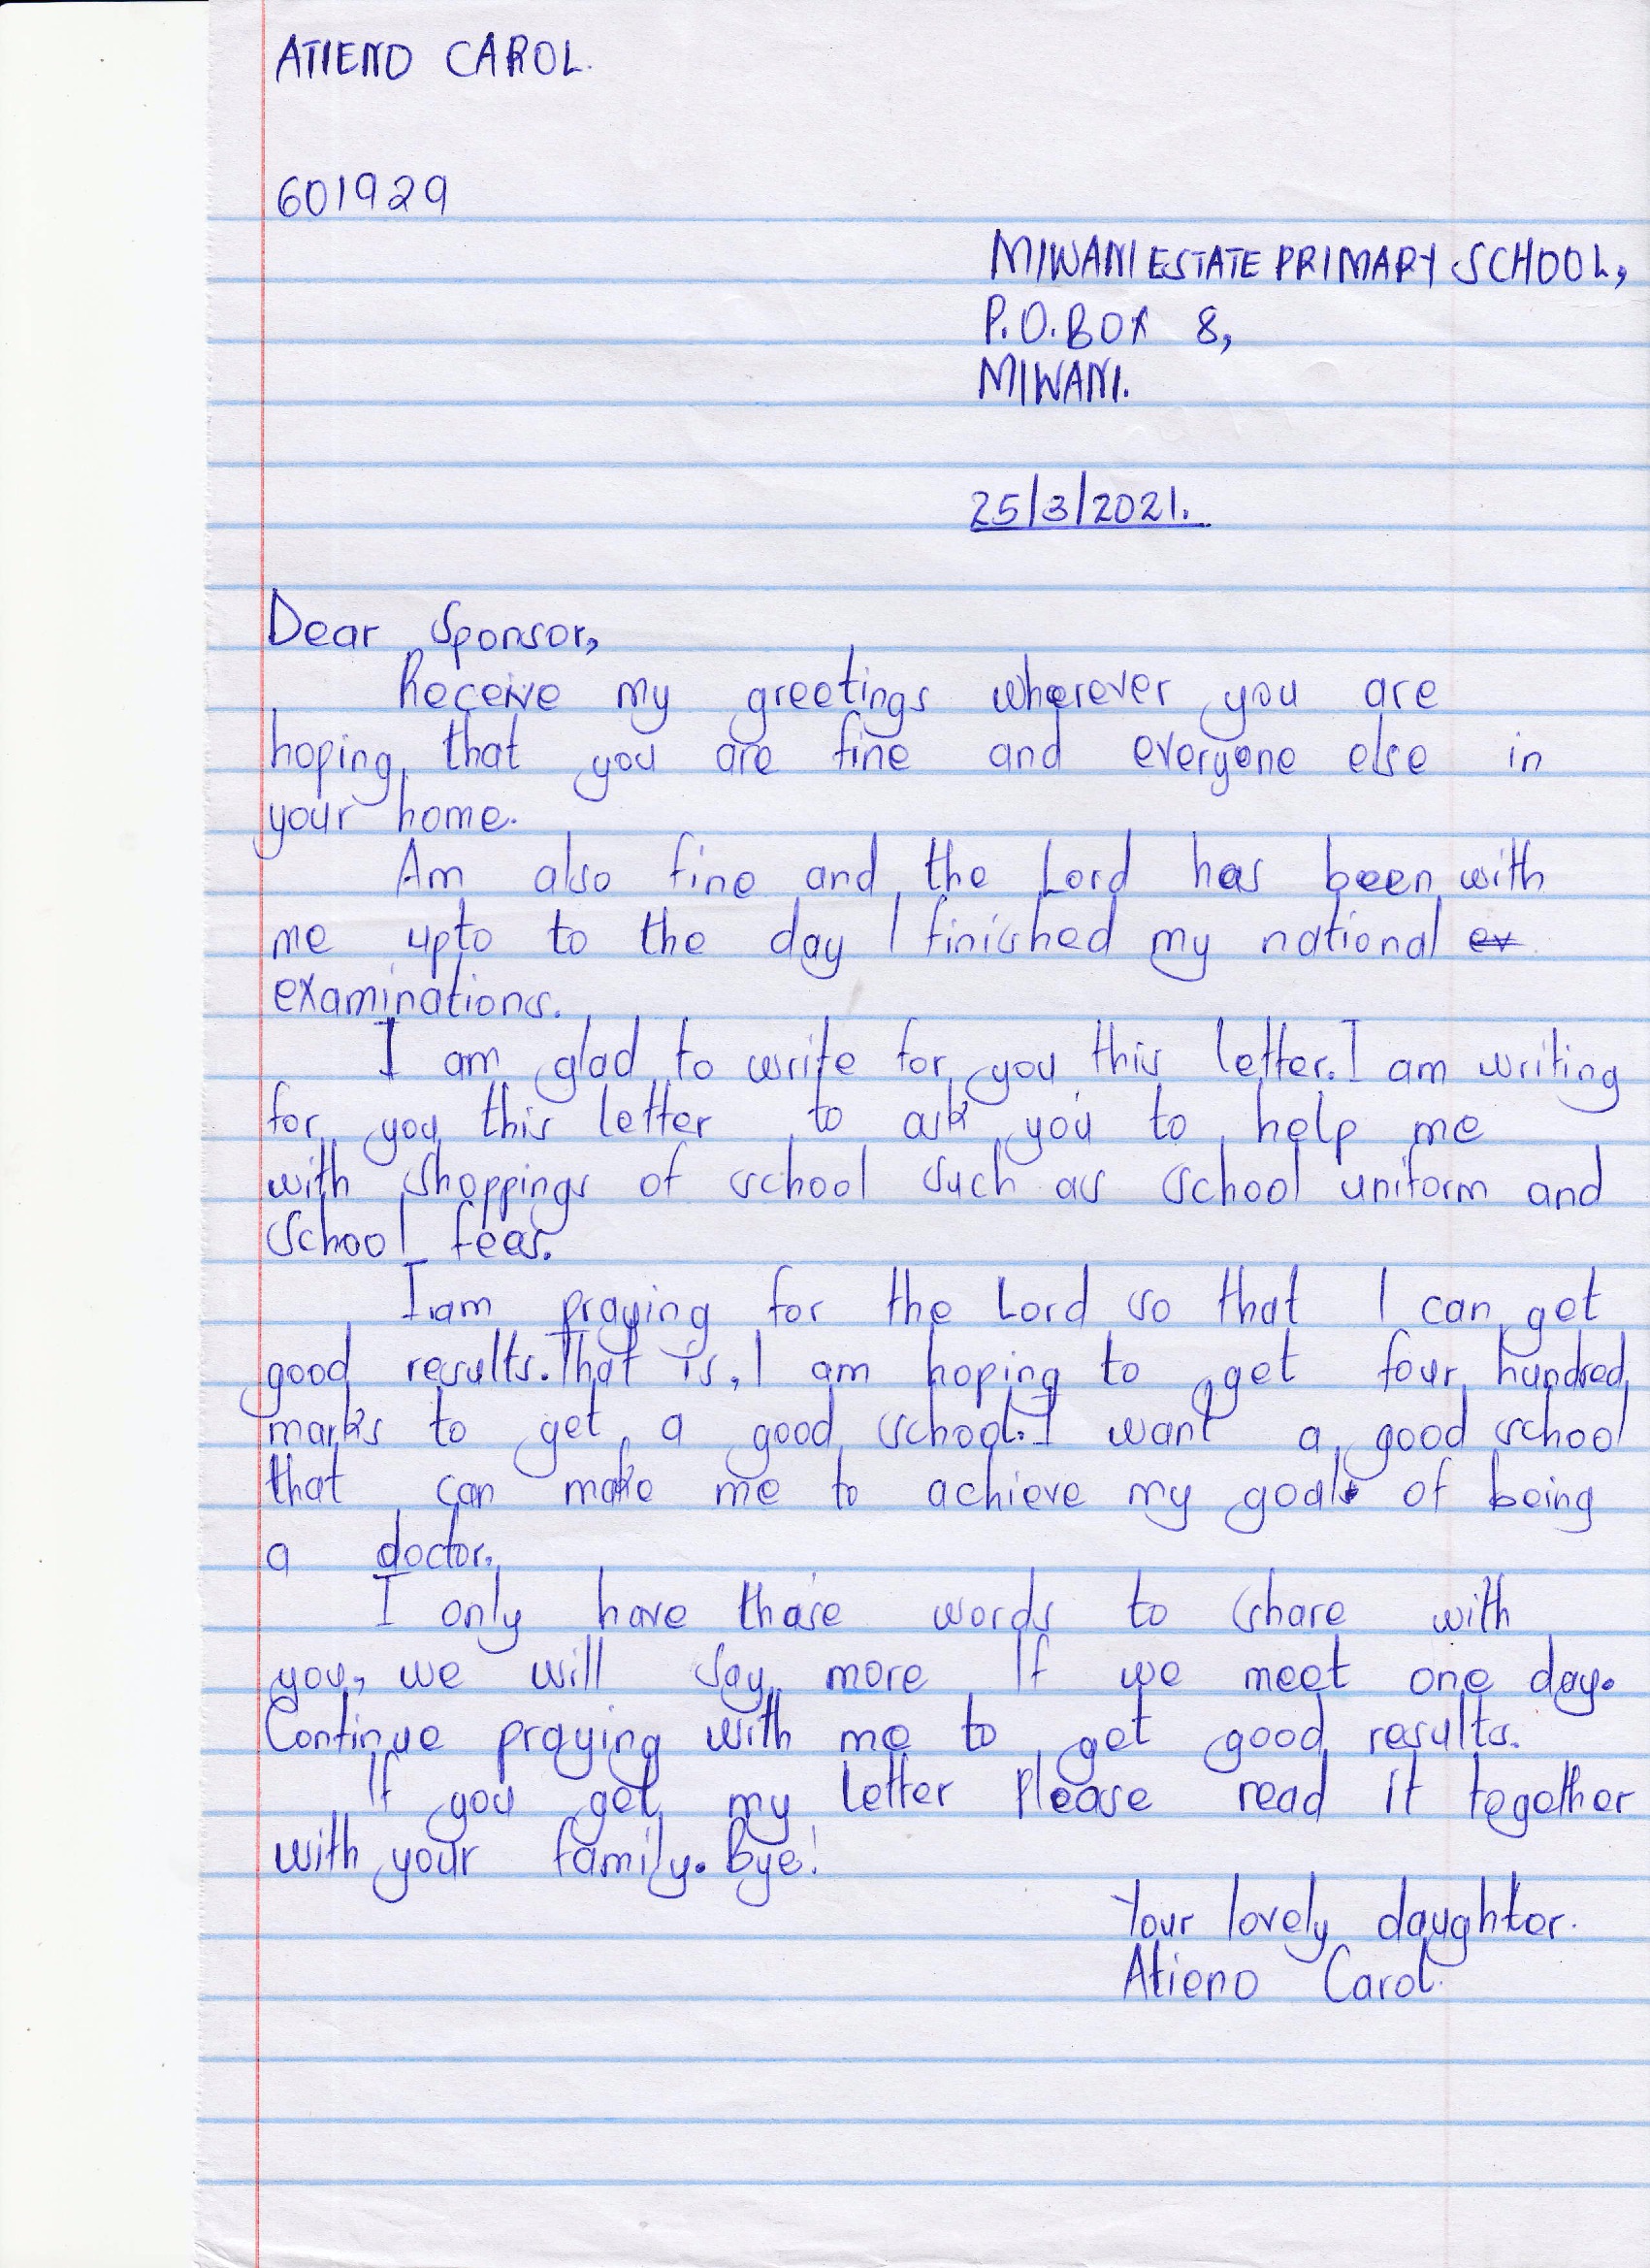 ATIENO CAROL.
601929
MIWANI ESTATE PRIMARY SCHOOL,
P.O.BOX 8,
MIWANI.
25/3/2021.
Dear Sponsor,
Receive my greetings wherever you are
hoping that you are fine and everyone else in
your home.
Am also fine and the Lord has been with
me upto to the day I finished my national ex
examinations.
I am glad to write for you this letter. I am writing
for you this letter to ask you to help me
with shoppings of school such as school uniform and
school fees.
I am praying for the Lord so that I can get
good results. That is, I am hoping to get four hundred
marks to get a good school. I want a good school
that can make me to achieve my goals of being
a doctor.
I only have those words to share with
you, we will say more If we meet one day.
Continue praying with me to get good results.
If you get my letter please read it together
with your family. Bye!
Your lovely daughter.
Atieno Carol.